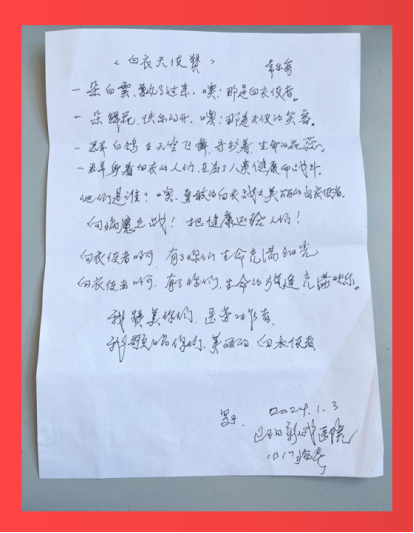 《白衣天使赞》
一朵白雲飘了过来，噢！那是白衣使者。
一朵鲜花，快乐的开，噢！那是天使的笑容。
一群白鸽在天空飞舞，守护着生命的花蕊。
一群身着白衣的人们，在为了人类健康而战斗。
他们是谁？噢，勇敢的白衣战士美丽的白衣使者。
向病魔宣战！把健康还给人们！
白衣使者呵呵，有了你们生命充满阳光
白衣使者呵呵，有了你们，生命的旅途充满快乐。
我赞美你们，医务工作者，
我歌唱你们，美丽的白衣使者
2024.1.3
医院